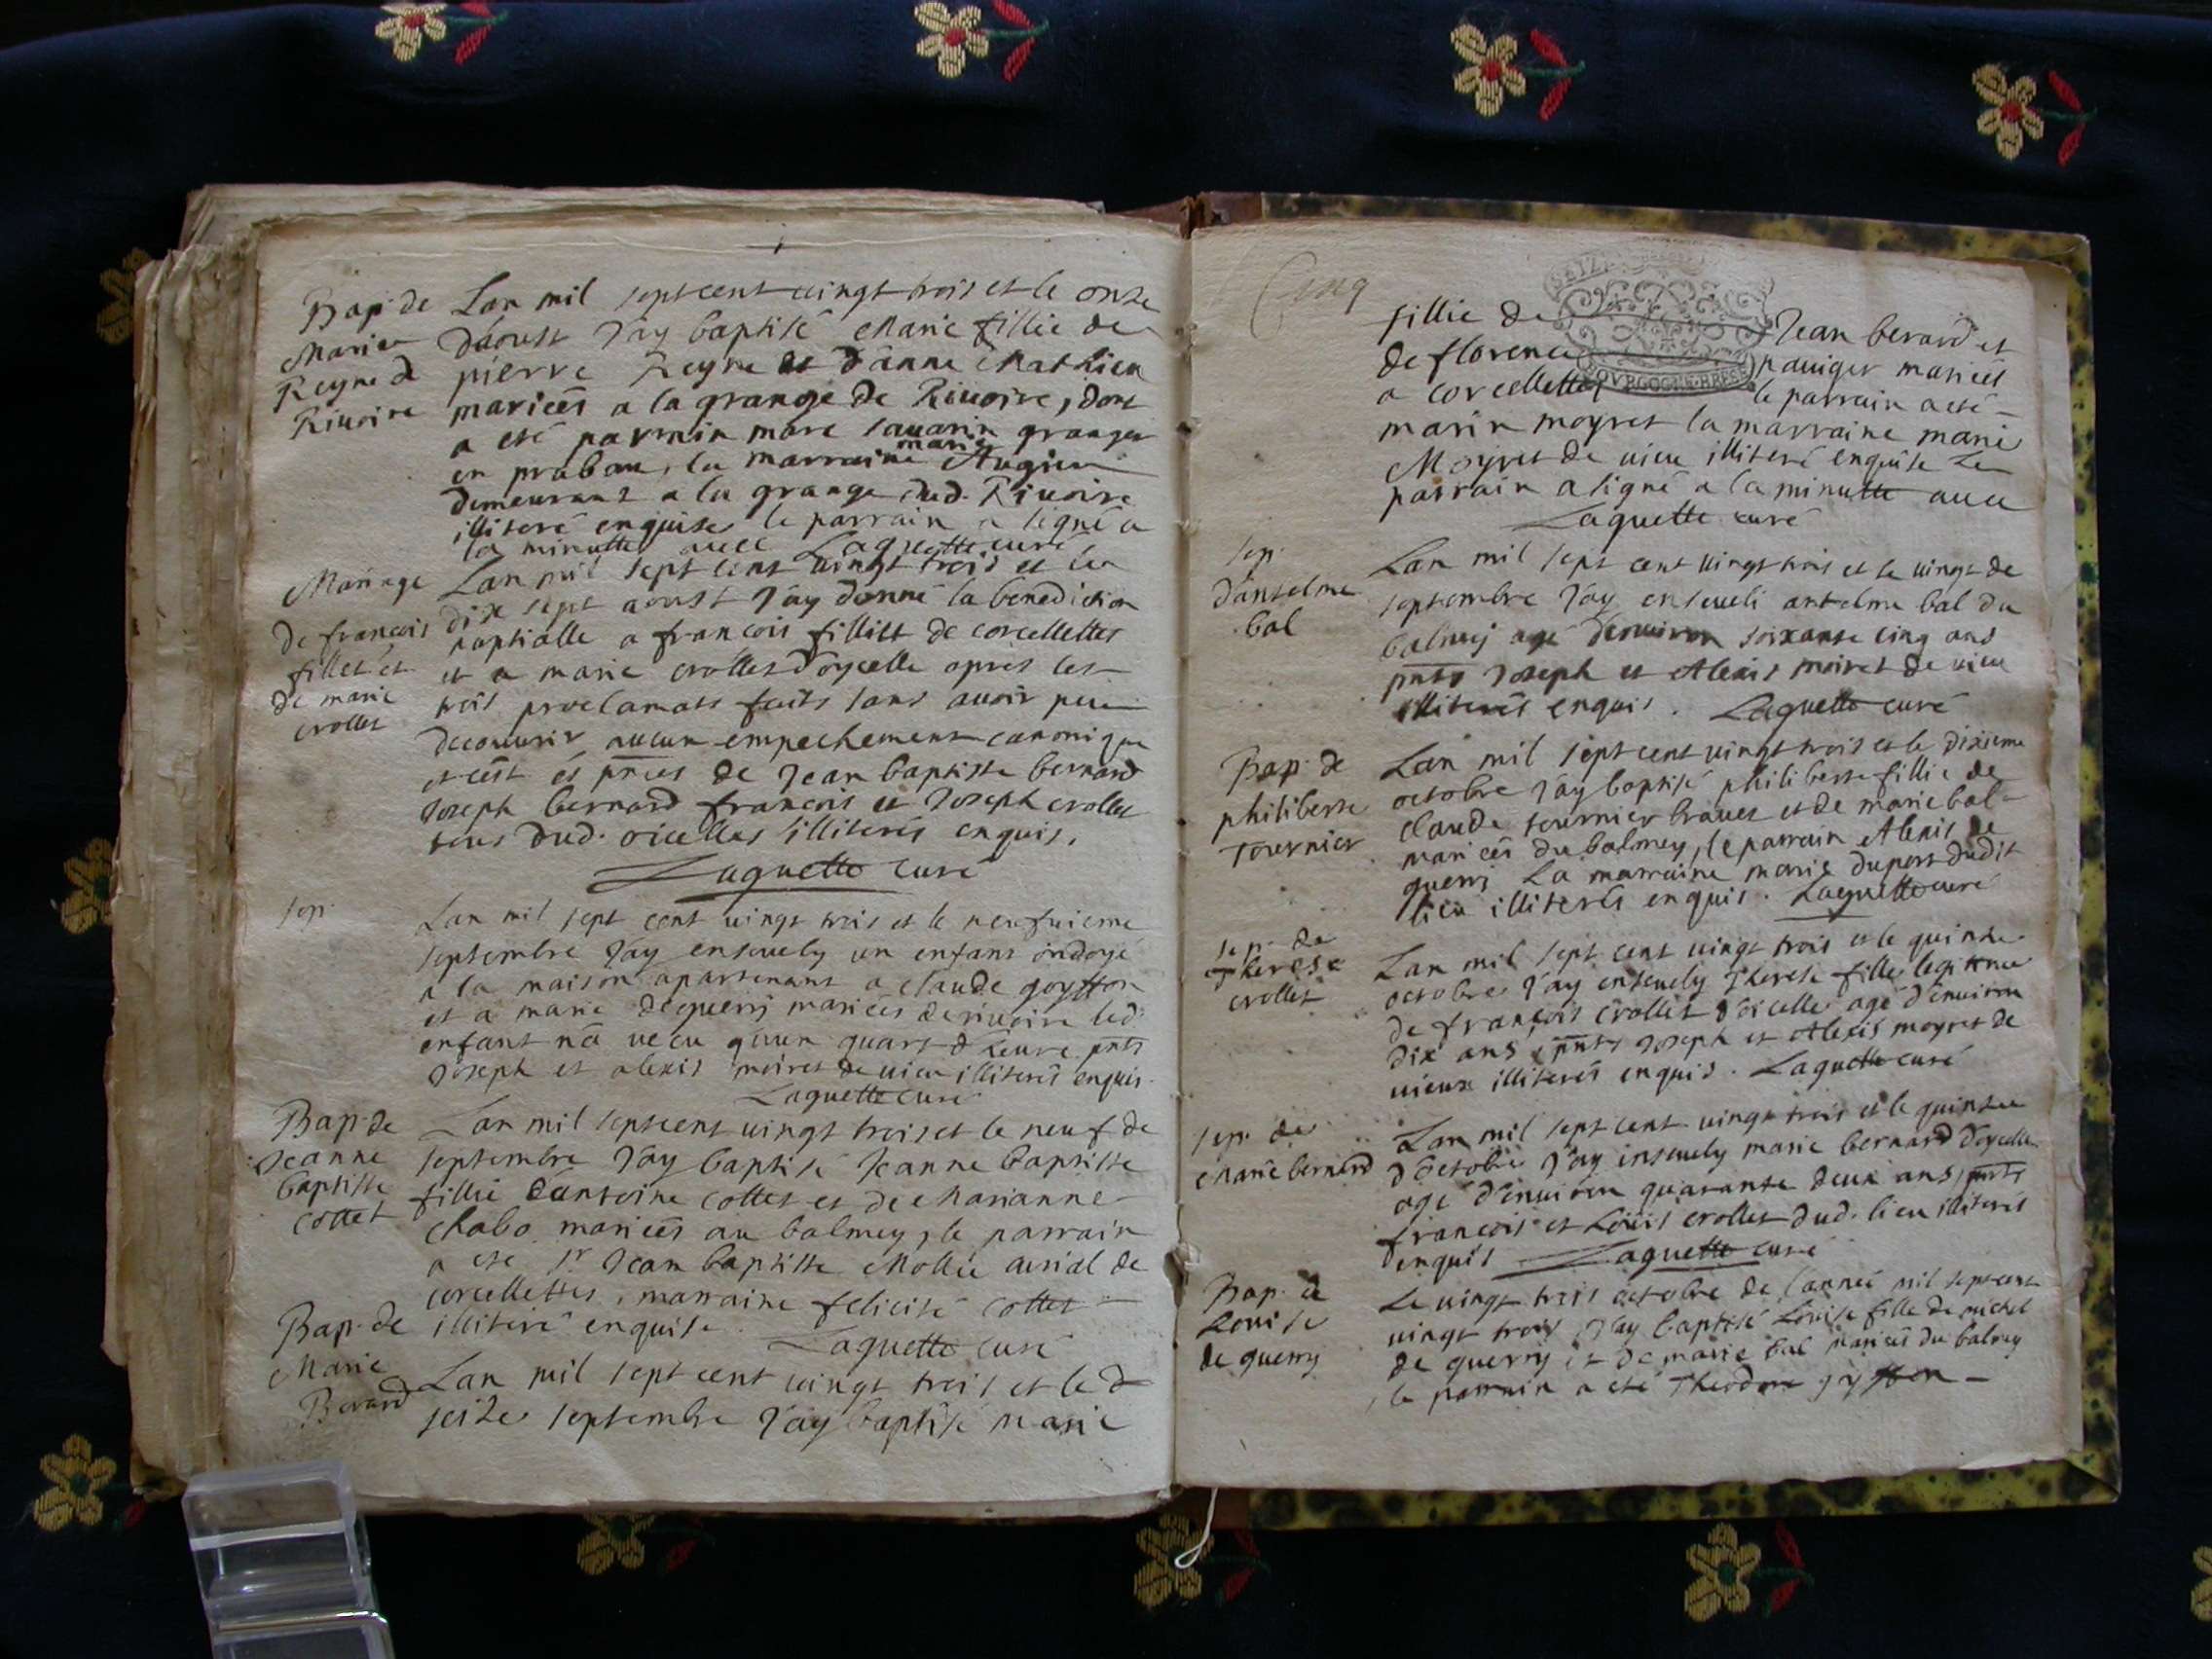 Bap. de
Marie
Reyne de
Rivoire
Lan mil sept cent vingt trois et le onze
daoust J'ay baptisé Marie fillie de
pierre Reyne et d'anne Mathieu
mariées a la grange de Rivoire, dont
a eté parrain marc savarin granger
en praban, la marraine marie Augier
demeurant a la grange dud. Rivoire
illiteré enquise le parrain a signé a
la minutte avec Laguette curé
Mariage
de francois
fillet et
de marie
crollet
Lan mil sept cent vingt trois et le
dix sept aoust J'ay donné la benediction
nuptialle a francois fillilt de corcellettes
et a marie crollet d'oycelle apres les
trois proclamats faits sans avoir peu
decouvrir aucun empechement canonique
et cest és pnces de Jean baptiste bernard
Joseph bernard francois et Joseph crollet
tous dud. oicelles illiterés enquis.
Laguette curé
sep.
Lan mil sept cent vingt trois et le neufvieme
septembre J'ay ensevely un enfant ondoyé
a la maison apartenant a claude goytton
et a marie deguerry mariées de rivoire led.
enfant n'a vecu q'un quart d'heure pnts
Joseph et alexis moiret de vieu illiterés enquis.
Laguette curé
Bap. de
Jeanne
baptiste
cottet
Lan mil sept cent vingt trois et le neuf de
septembre J'ay baptisé Jeanne baptiste
fillie d'antoine cottet et de Marianne
chabo mariées au balmey, le parrain
a ete sr Jean baptiste Mollie avrial de
corcellettes, marraine felicité cottet
illiteré enquise. Laguette curé
Bap. de
Marie
Berard
Lan mil sept cent vingt trois et le d
seize septembre J'ay baptisé marie
Cinq
fillie de Jean berard et
de florence paviger mariées
BOVRGOGNE BRESSE
a corcellettes le parrain a eté
marin moyret la marraine marie
Moyret de vieu illiteré enquise Le
parrain a signé a la minutte avec
Laguette curé
sep.
d'anselme
bal
Lan mil sept cent vingt trois et le vingt de
septembre J'ay enseveli anselme bal du
balmey agé d'environ soixante cinq ans
pnts Joseph et Alexis moiret de vieu
illiterés enquis. Laguette curé
Bap. de
philiberte
Tournier
Lan mil sept cent vingt trois et le dixieme
octobre J'ay baptisé philiberte fillie de
claude tournier bravet et de marie bal
mariées du balmey, le parrain Alexis de
guerry La marraine marie duport dudit
lieu illiterés enquis. Laguette curé
sep. de
Therese
crollet
Lan mil sept cent vingt trois et le quinze
octobre J'ay ensevely Therese fille legitime
de francois crollet d'oicelle agé d'environ
dix ans, pnts Joseph et Alexis moyret de
vieux illiterés enquis. Laguette curé
sep. de
Marie bernard
Lan mil sept cent vingt trois et le quinze
d'octobre J'ay ensevely marie bernard d'oycelle
agé d'environ quarante deux ans, pnts
francois et Loüis crollet dud. lieu illiterés
enquis Laguette curé
Bap. de
Louise
de guerry
Le vingt trois octobre de l'année mil sept cent
vingt trois J'ay baptisé Louise fille de michel
de guerry et de marie bal mariées du balmey
le parrain a eté Theodore goytton